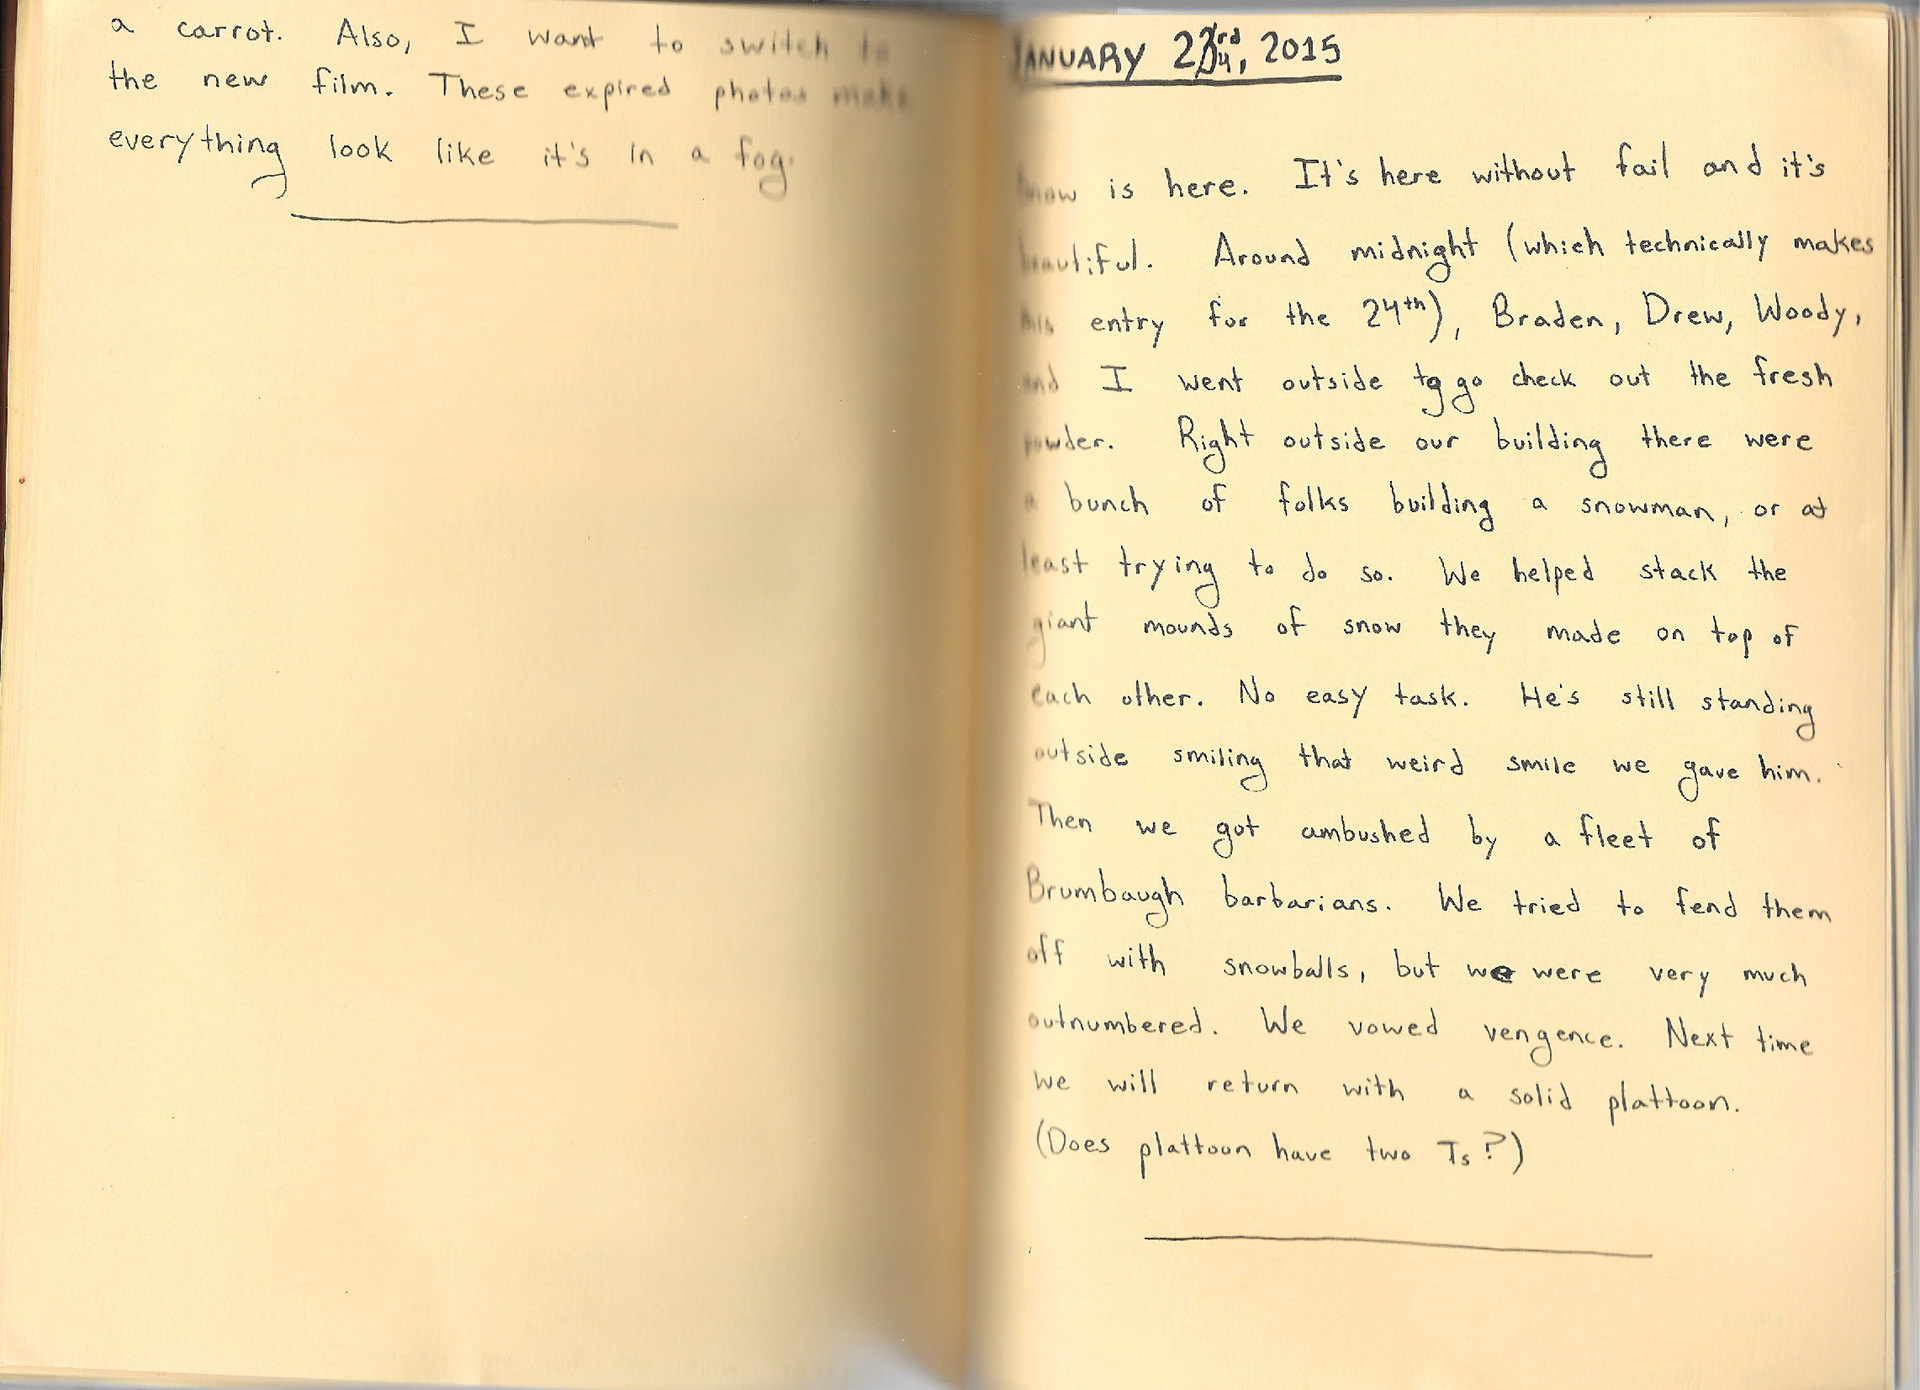 a carrot. Also, I want to switch to
the new film. These expired photos make
everything look like it's in a fog.
JANUARY 23rd, 2015
Snow is here. It's here without fail and it's
beautiful. Around midnight (which technically makes
this entry for the 24th), Braden, Drew, Woody,
and I went outside to go check out the fresh
powder. Right outside our building there were
a bunch of folks building a snowman, or at
least trying to do so. We helped stack the
giant mounds of snow they made on top of
each other. No easy task. He's still standing
outside smiling that weird smile we gave him.
Then we got ambushed by a fleet of
Brumbaugh barbarians. We tried to fend them
off with snowballs, but we were very much
outnumbered. We vowed vengence. Next time
we will return with a solid plattoon.
(Does plattoon have two Ts?)